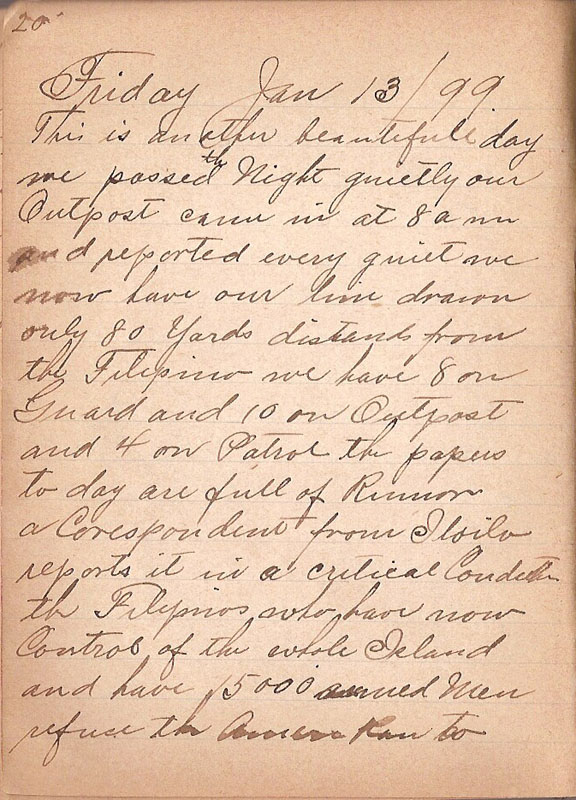 20
Friday Jan 13/99
This is another beautifull day
we passed the Night quietly our
Outpost came in at 8 am
and reported every quiet we
now have our line drawn
only 80 Yards distands from
the Filipino we have 8 on
Guard and 10 on Outpost
and 4 on Patrol the papers
to day are full of Rumor
a Corespondent from Iloilo
reports it in a critical Condition
the Filipinos who have now
Control of the whole Island
and have 15000 armed Men
refuse the American to